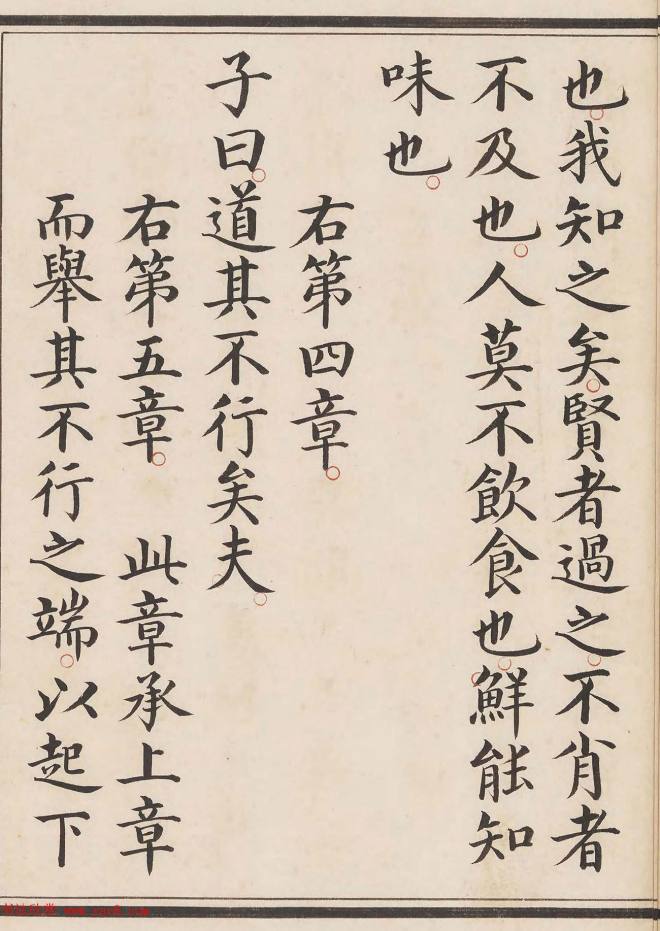 也我知之矣賢者過之不肖者
不及也人莫不飲食也鮮能知
味也
右第四章
子曰道其不行矣夫
右第五章 此章承上章
而舉其不行之端以起下